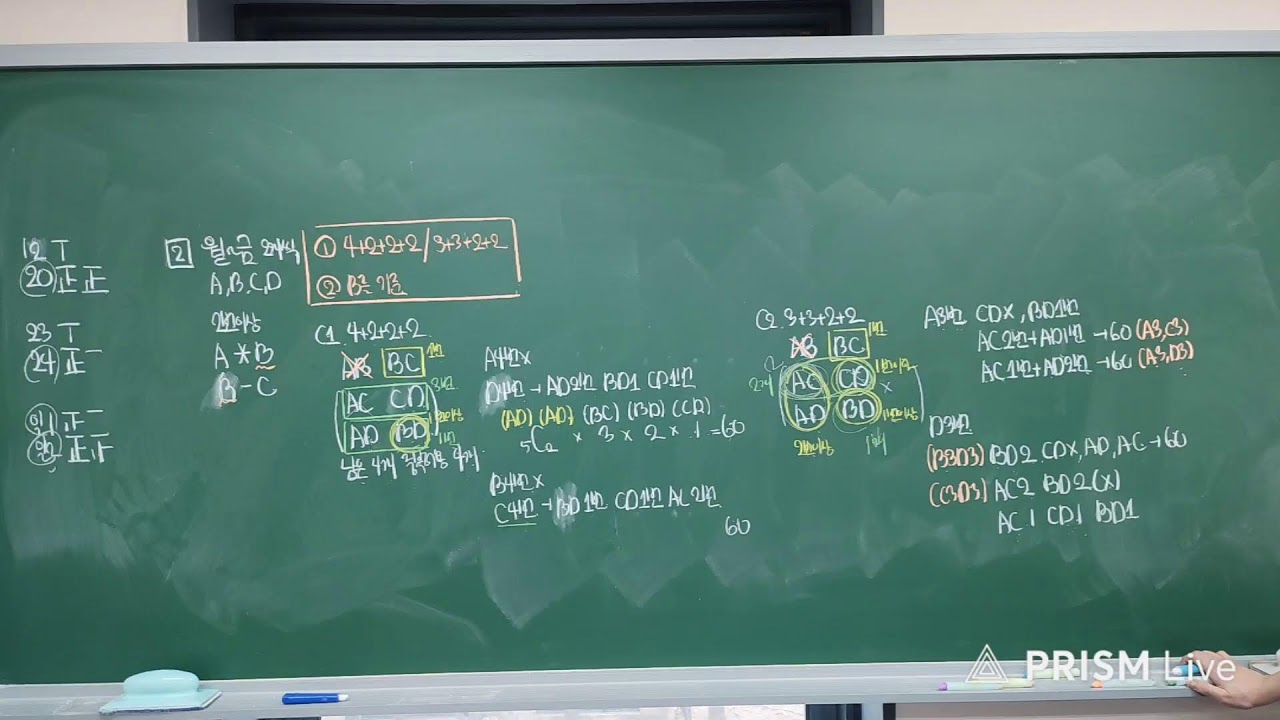 12 T
20 正正
23 T
24 正
正
正正
2 월~금
A, B, C, D
A * B
B - C
① 4+2+2+2 / 3+3+2+2
② B를 기준
C1. 4+2+2+2
AB BC 1번
AC CD
AD BD
남은 4가지
A4번 X
D4번 → AD2번 BD1 CD1번
(AD) (AD) (BC) (BD) (CD)
5C2 × 3 × 2 × 1 = 60
B4번 X
C4번 → BD1번 CD1번 AC2번
60
C2. 3+3+2+2
AB BC 1번
AC CD X
AD BD
A3번 CDX, BD1번
AC2번+AD1번 → 60 (A3, C3)
AC1번+AD2번 → 60 (A3, D3)
D3번
(B3D3) BD2 CDX, AD, AC → 60
(C3D3) AC2 BD2(X)
AC1 CD1 BD1
PRISM Live